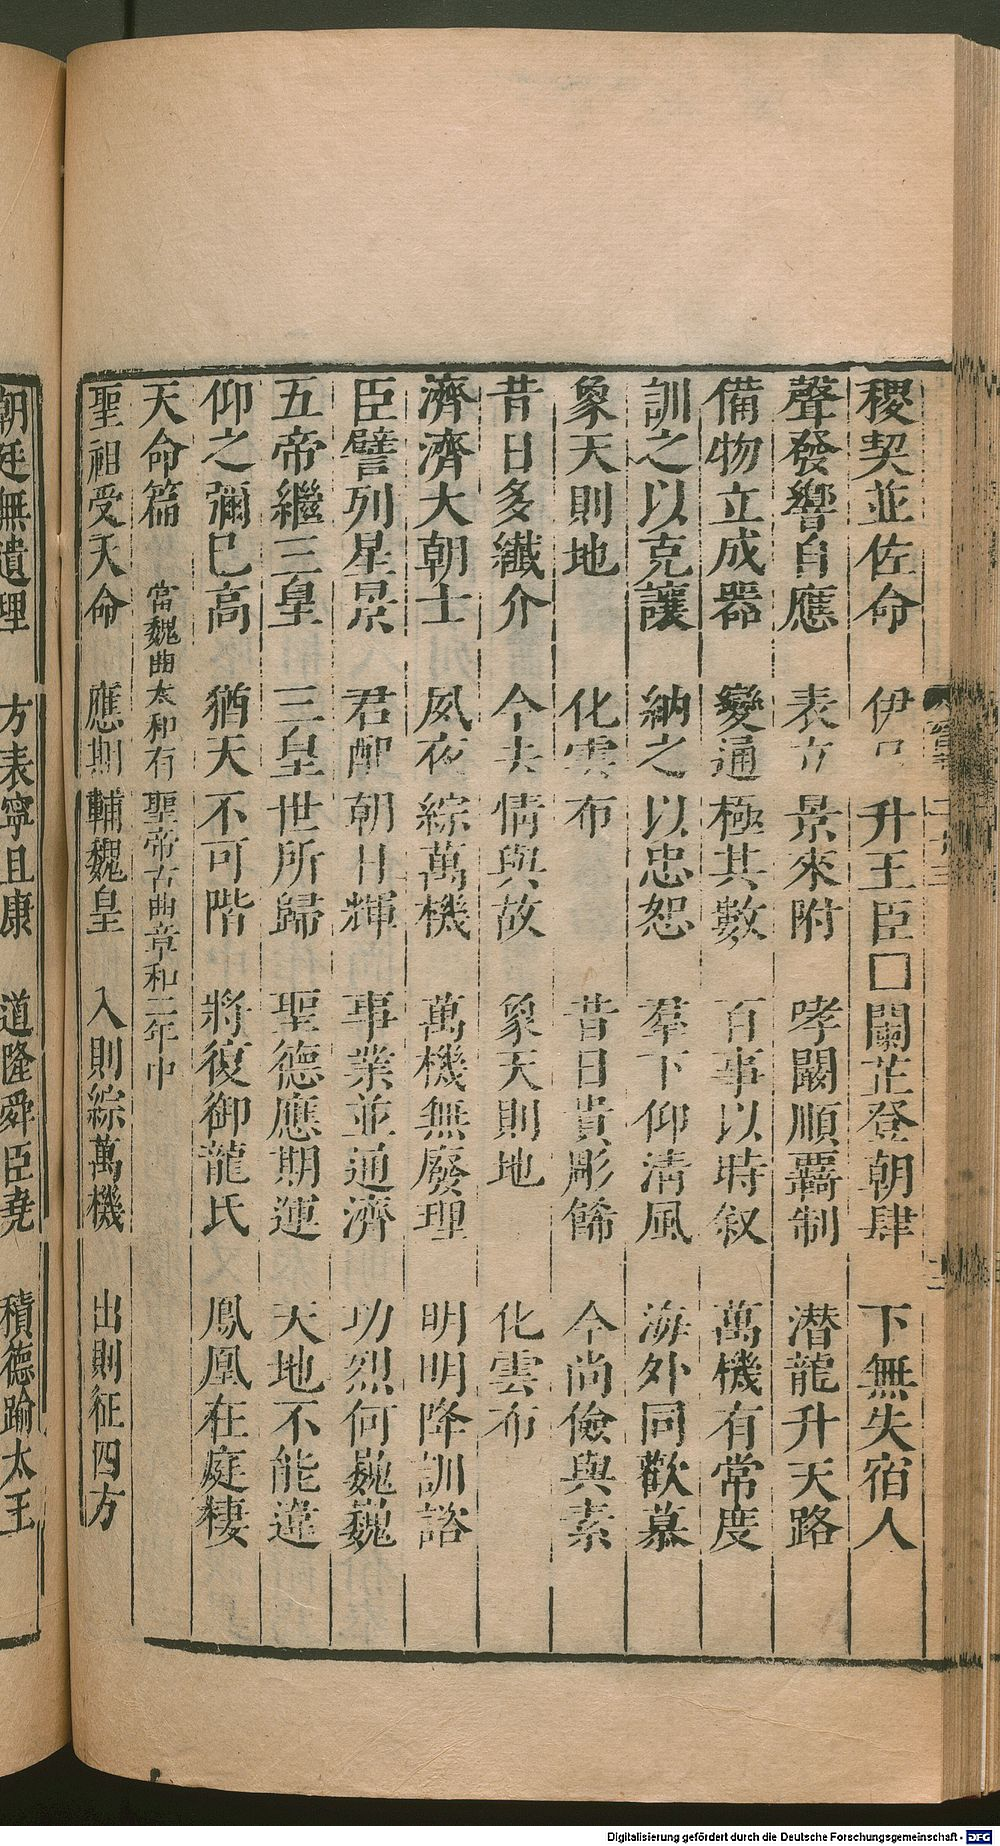 稷契並佐命　伊呂升王臣□蘭芷登朝肆　下無失宿人
聲發響自應　表立景來附　哮闞順羈制　潛龍升天路
備物立成器　變通極其數　百事以時叙　萬機有常度
訓之以克讓　納之以忠恕　羣下仰清風　海外同歡慕
象天則地　化雲布　昔日貴彫餙　今尚儉與素
昔日多纎介　今去情與故　象天則地　化雲布
濟濟大朝士　夙夜綜萬機　萬機無廢理　明明降訓諮
臣譬列星景　君配朝日輝　事業並通濟　功烈何巍巍
五帝繼三皇　三皇世所歸　聖德應期運　天地不能違
仰之彌已高　猶天不可階　將復御龍氏　鳳凰在庭棲
天命篇　當魏曲太和有聖帝古曲章和二年中
聖祖受天命　應期輔魏皇　入則綜萬機　出則征四方
朝廷無遺理　方表寧且康　道隆舜臣堯　積德踰太王
Digitalisierung gefördert durch die Deutsche Forschungsgemeinschaft - DFG